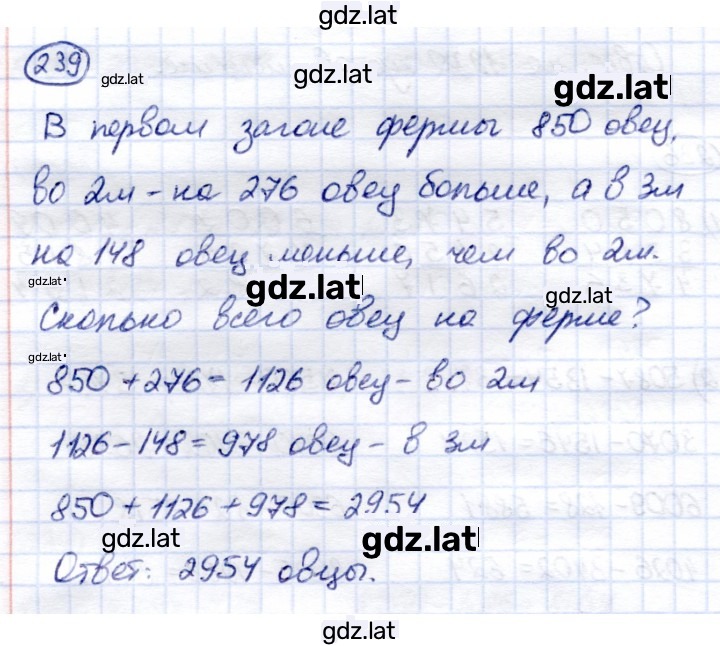 gdz.lat
239
gdz.lat
gdz.lat
gdz.lat
В первом загоне фермы 850 овец,
во 2м - на 276 овец больше, а в 3м
на 148 овец меньше, чем во 2м.
gdz.lat
gdz.lat
gdz.lat
Сколько всего овец на ферме?
gdz.lat
850 + 276 = 1126 овец - во 2м
1126 - 148 = 978 овец - в 3м
850 + 1126 + 978 = 2954
gdz.lat
gdz.lat
Ответ: 2954 овцы.
gdz.lat